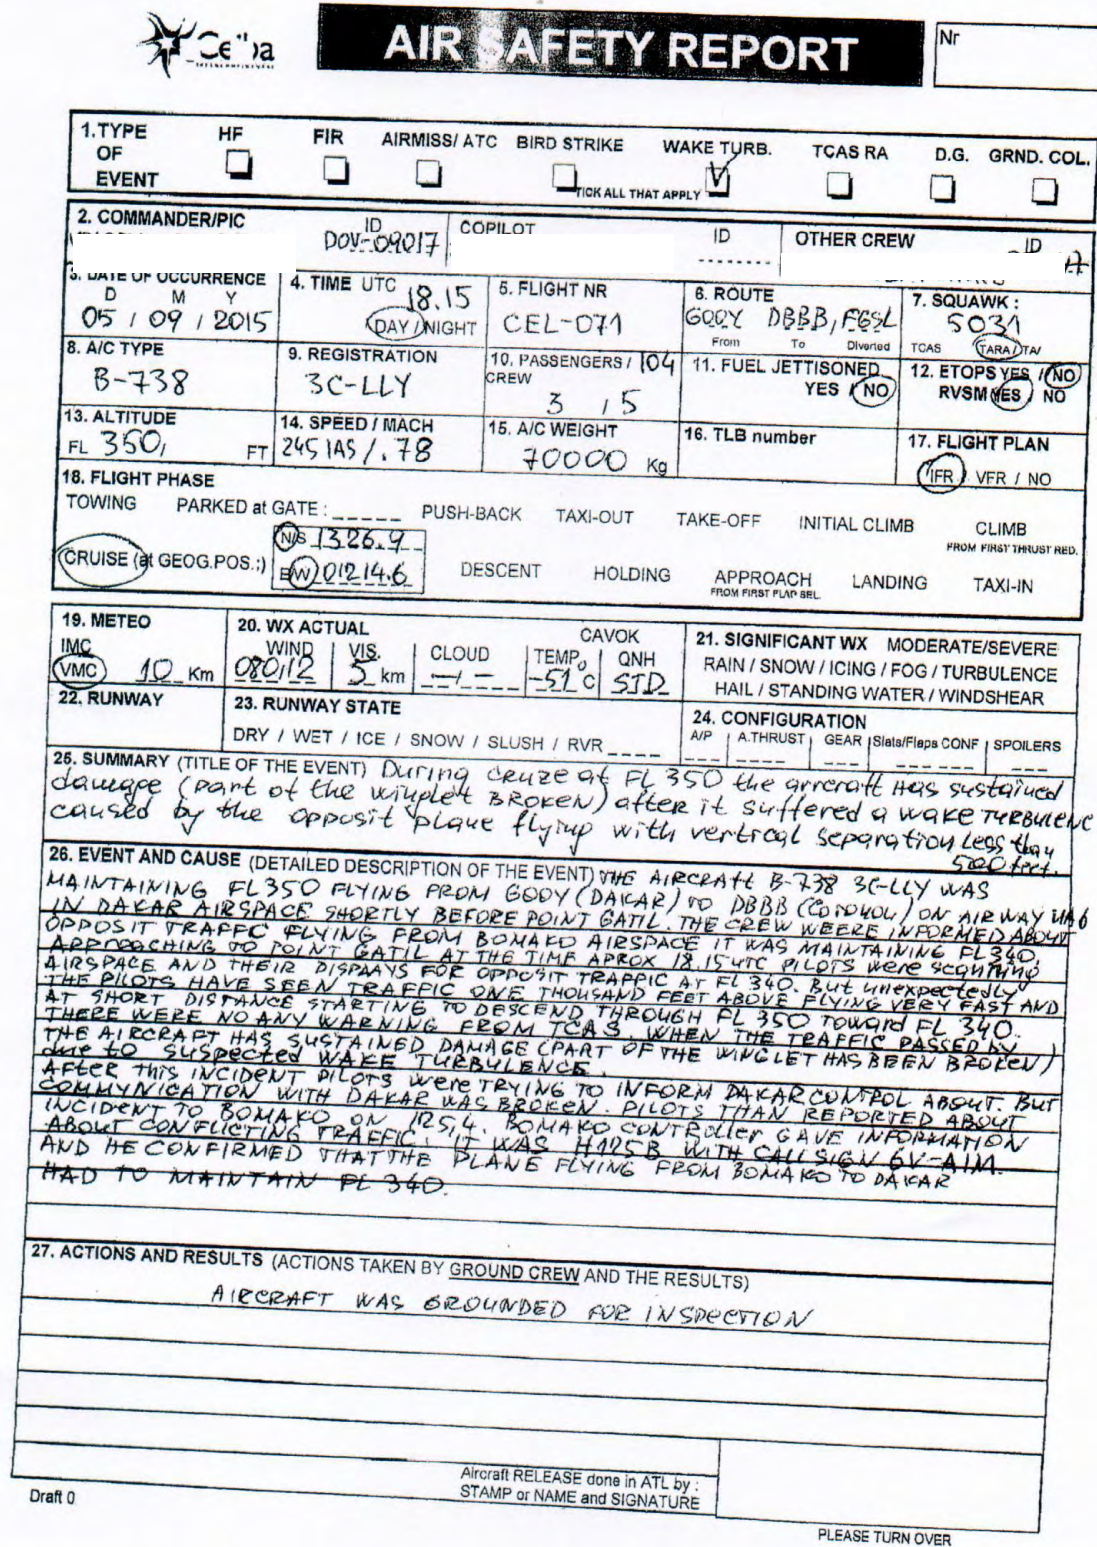 Ceiba
INTERCONTINENTAL
AIR SAFETY REPORT
Nr
1.TYPE OF EVENT
HF FIR AIRMISS/ ATC BIRD STRIKE WAKE TURB. TCAS RA D.G. GRND. COL.
TICK ALL THAT APPLY V
2. COMMANDER/PIC ID DOV-09017 COPILOT ID OTHER CREW ID
3. DATE OF OCCURRENCE D M Y 05 / 09 / 2015
4. TIME UTC 18.15 DAY / NIGHT
5. FLIGHT NR CEL-071
6. ROUTE GOOY DBBB, FGSL From To Diverted
7. SQUAWK : 5031 TCAS TARA / TA/
8. A/C TYPE B-738
9. REGISTRATION 3C-LLY
10. PASSENGERS / 104 CREW 3 / 5
11. FUEL JETTISONED YES / NO
12. ETOPS YES / NO RVSM YES / NO
13. ALTITUDE FL 350, FT
14. SPEED / MACH 245 IAS / .78
15. A/C WEIGHT 70000 Kg
16. TLB number
17. FLIGHT PLAN IFR / VFR / NO
18. FLIGHT PHASE
TOWING PARKED at GATE : _ _ _ _ _ PUSH-BACK TAXI-OUT TAKE-OFF INITIAL CLIMB CLIMB
FROM FIRST THRUST RED.
CRUISE (at GEOG.POS.:) N/S 1326.9
E/W 01214.6 DESCENT HOLDING APPROACH LANDING TAXI-IN
FROM FIRST FLAP SEL.
19. METEO IMC VMC 10 Km
20. WX ACTUAL CAVOK
WIND VIS. CLOUD TEMP. QNH
080/12 5 km --/-- -51 °C STD
21. SIGNIFICANT WX MODERATE/SEVERE
RAIN / SNOW / ICING / FOG / TURBULENCE
HAIL / STANDING WATER / WINDSHEAR
22. RUNWAY
23. RUNWAY STATE
DRY / WET / ICE / SNOW / SLUSH / RVR _ _ _ _
24. CONFIGURATION
A/P A.THRUST GEAR Slats/Flaps CONF SPOILERS
25. SUMMARY (TITLE OF THE EVENT) During cruze at FL 350 the arrcraft Has sustained
damage (part of the winglet BROKEN) after it suffered a wake TURBULENC
caused by the opposit plane flying with vertical separation less than
500 feet.
26. EVENT AND CAUSE (DETAILED DESCRIPTION OF THE EVENT) THE AIRCRAft B-738 3C-LLY WAS
MAINTAINING FL350 FLYING FROM GOOY (DAKAR) TO DBBB (COTONOU) ON AIRWAY UA6
IN DAKAR AIRSPACE SHORTLY BEFORE POINT GATIL. THE CREW WEERE INFORMED ABOUT
OPPOSIT TRAFFC FLYING FROM BOMAKO AIRSPACE IT WAS MAINTAINING FL340.
APPROACHING TO POINT GATIL AT THE TIME APROX 18.15 UTC PILOTS were scanning
AIRSPACE AND THEIR DISPAAYS FOR OPPOSIT TRAFFIC AT FL 340. But unexpectedly
THE PILOTS HAVE SEEN TRAFFIC ONE THOUSAND FEET ABOVE FLYING VERY FAST AND
AT SHORT DISTANCE STARTING TO DESCEND THROUGH FL 350 TOWARD FL 340.
THERE WERE NO ANY WARNING FROM TCAS. WHEN THE TRAFFIC PASSED BY
THE AIRCRAFT HAS SUSTAINED DAMAGE (PART OF THE WINGLET HAS BEEN BROKEN)
due to SUSPECTED WAKE TURBULENCE.
AFTER THIS INCIDENT PILOTS were TRYING TO INFORM DAKAR CONTROL ABOUT. BUT
COMMYNICATION WITH DAKAR WAS BROKEN. PILOTS THAN REPORTED ABOUT
INCIDENT TO BOMAKO ON 125,4. BOMAKO CONTROller GAVE INFORMATION
ABOUT CONFLICTING TRAFFIC. IT WAS H125B WITH CALLSIGN 6V-AIM.
AND HE CONFIRMED THAT THE PLANE FLYING FROM BOMAKO TO DAKAR
HAD TO MAINTAIN FL 340.
27. ACTIONS AND RESULTS (ACTIONS TAKEN BY GROUND CREW AND THE RESULTS)
AIRCRAFT WAS GROUNDED FOR INSPECTION
Aircraft RELEASE done in ATL by :
STAMP or NAME and SIGNATURE
Draft 0
PLEASE TURN OVER